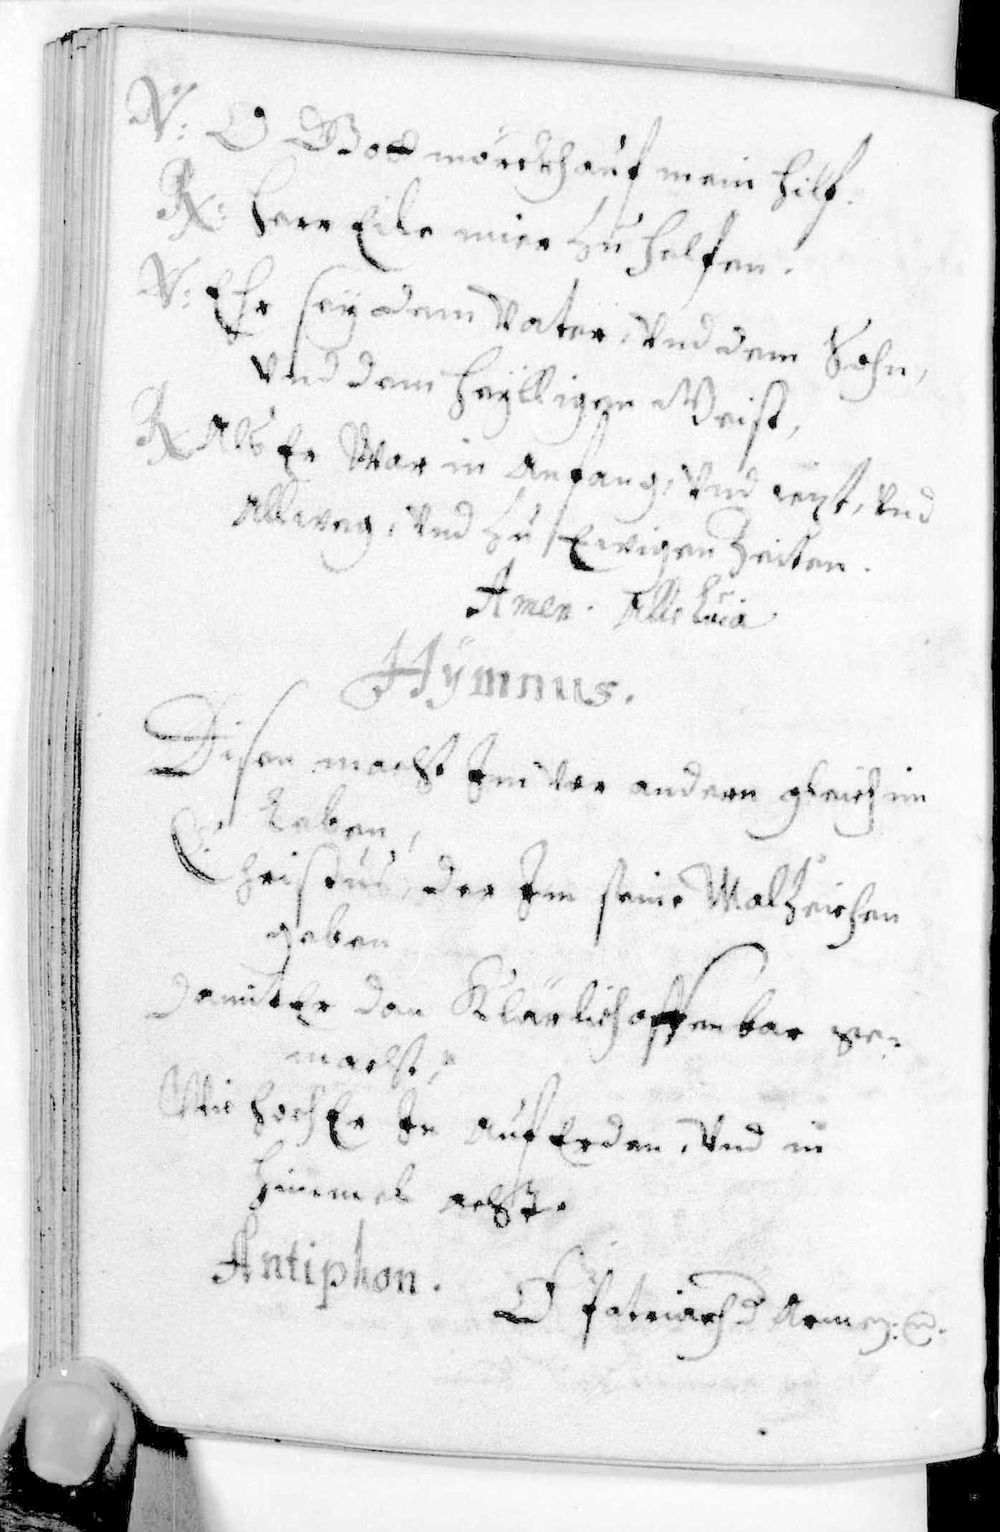 V: O Gott mörckh auf mein hilf.
R: herr Eile mier zu helfen.
V: Ehr seÿ dem Vater, Vnd dem Sohn,
Vnd dem heÿlligen Geist,
R Als Er War in Anfang, Vnd iezt, Vnd
Alleweg, Vnd zu Ewigen Zeiten.
Amen. Alleluia
Hÿmnus.
Disen macht Im Vor andern gleich im
Leben,
Christus, der Im seine Malzeichen
geben
damit Er den Klärlich offenbar ge=
macht,
Wie hoch Er In Auf Erden, Vnd in
himmel acht.
Antiphon. O Patriarch d Armen: etc.